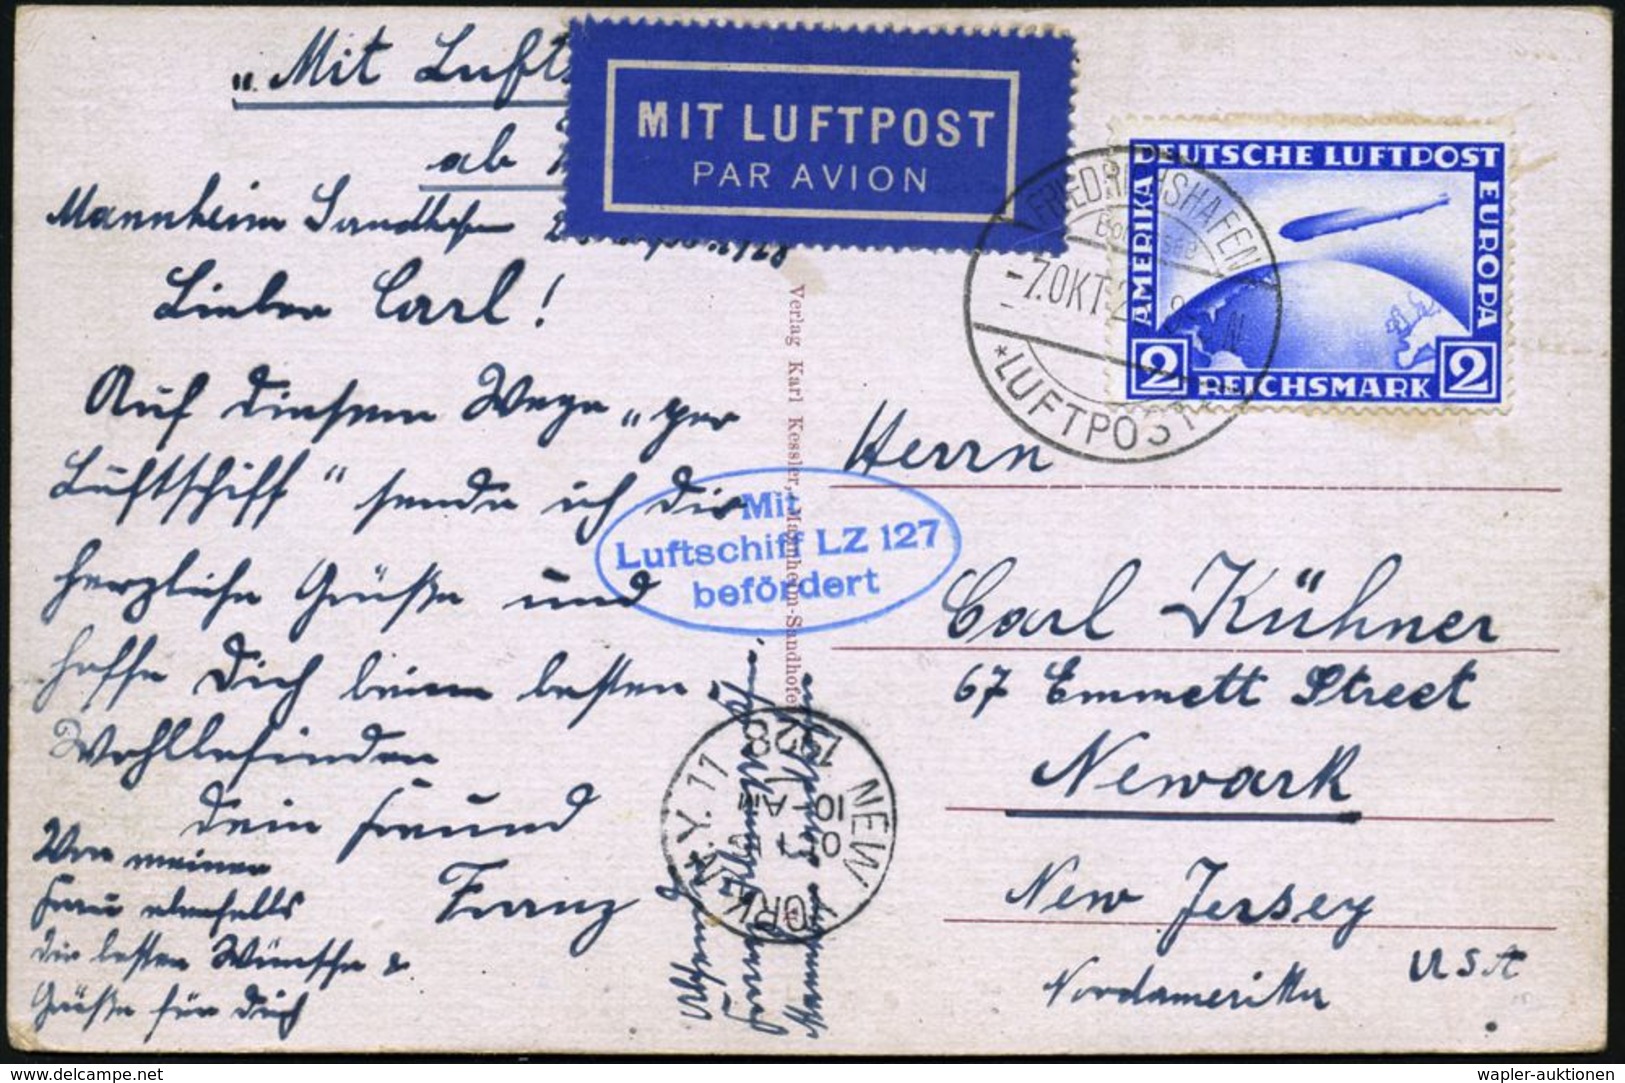 „Mit
ab
MIT LUFTPOST
PAR AVION
Mannheim Sandhofen
Lieber Carl!
Auf diesem Wege „per
Luftschiff" sende ich Dir
herzliche Grüße und
hoffe Dich beim besten
Wohlbefinden
Dein Freund
Franz
Von meiner
Frau ebenfalls
die besten Wünsche &
Grüße für Dich
Verlag Karl Kessler, Mannheim-Sandhofen
Mit
Luftschiff LZ 127
befördert
FRIEDRICHSHAFEN
Bodensee
-7.OKT.
*LUFTPOST*
DEUTSCHE LUFTPOST
AMERIKA
EUROPA
2 REICHSMARK 2
NEW YORK, N.Y. 11
OCT
10-AM
1928
Herrn
Carl Kühner
67 Emmett Street
Newark
New Jersey
Nordamerika
USA
wapler-auktionen
www.delcampe.net